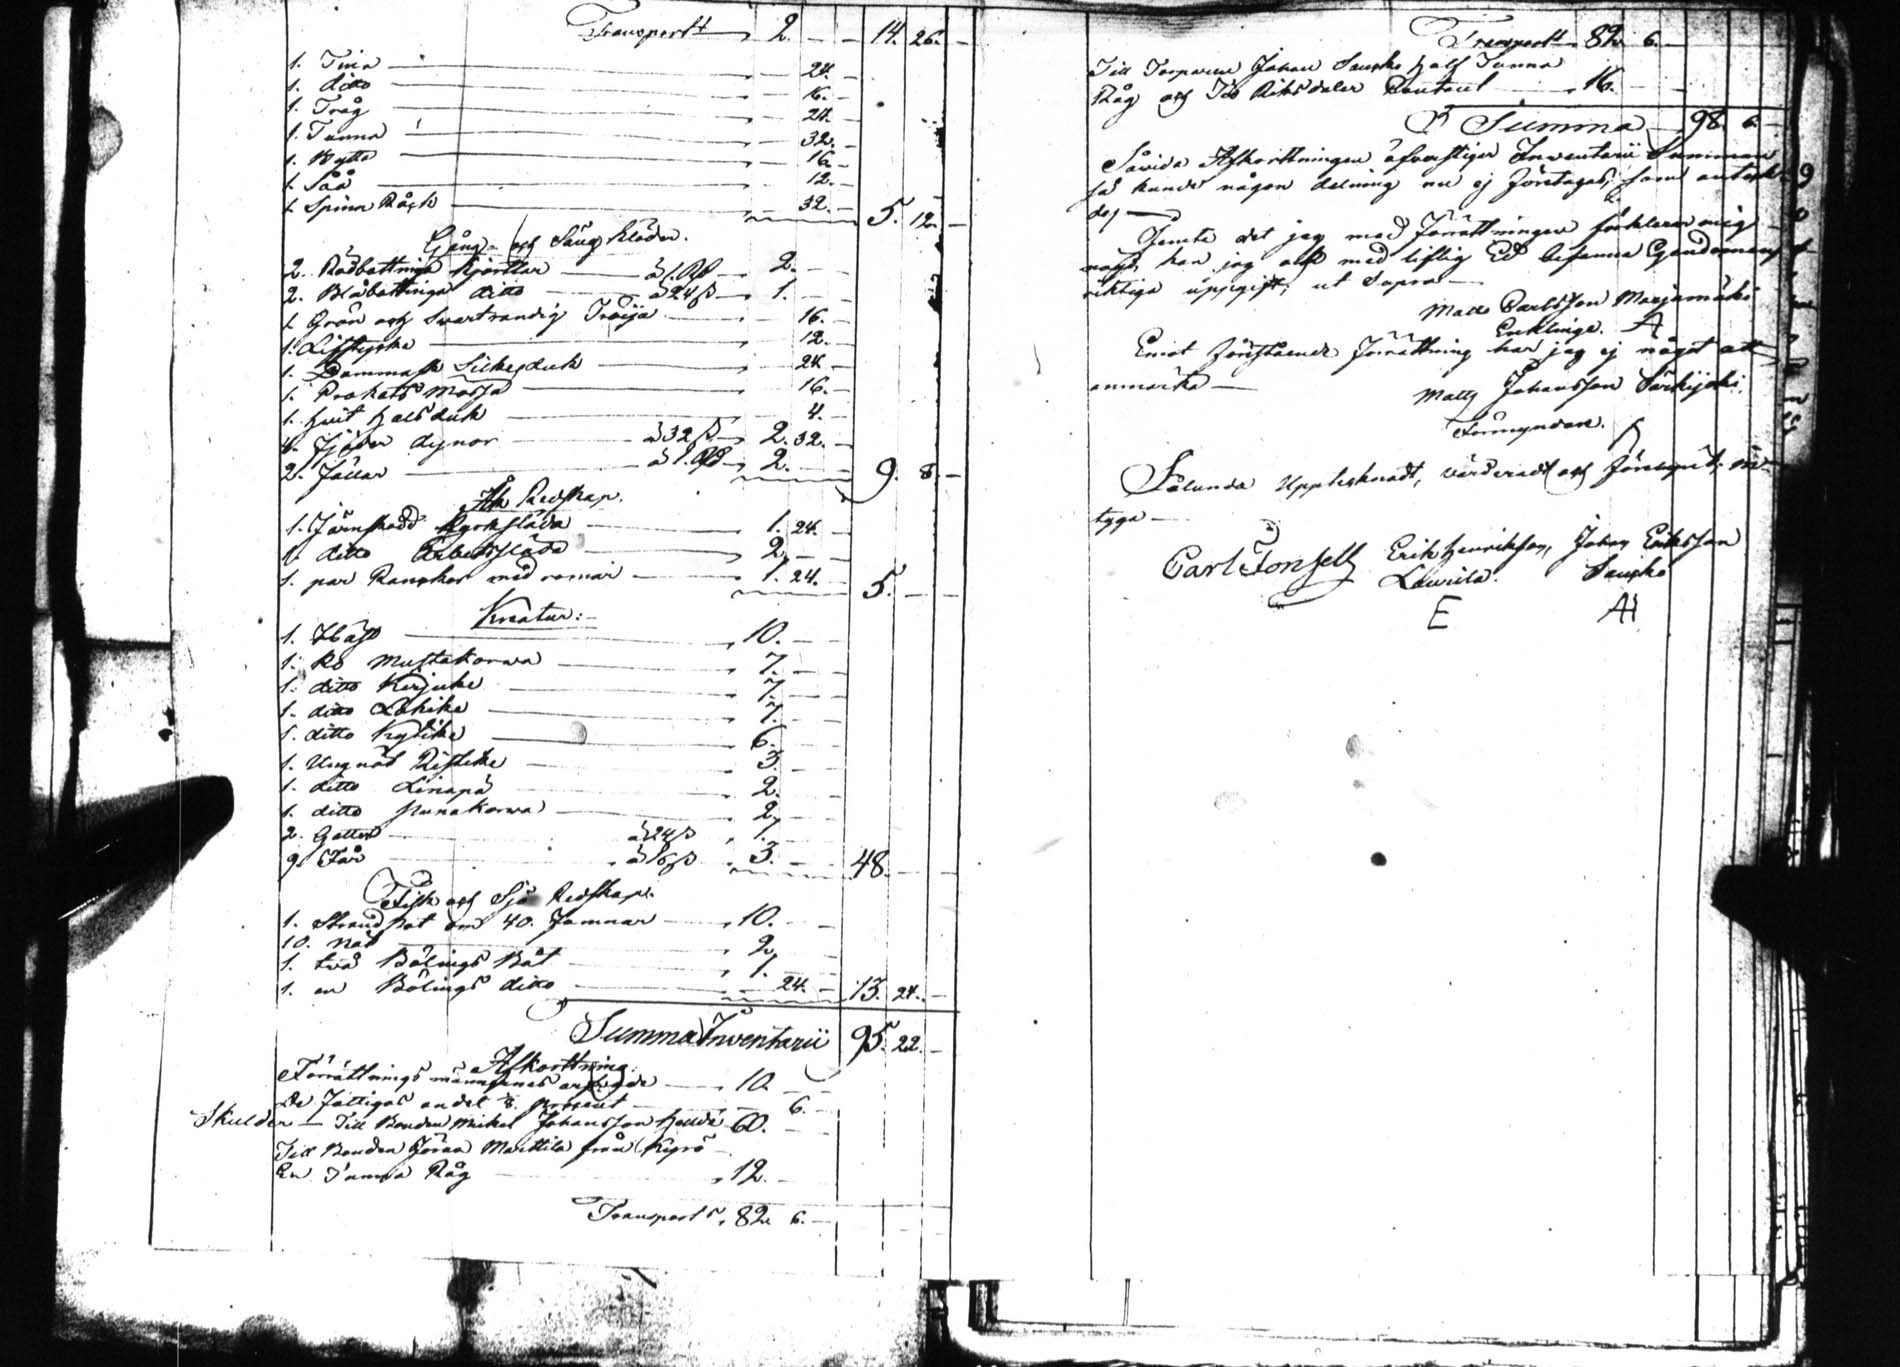 Transport 2. — — 14. 26. —
1. Tina — 24. —
1. ditto — 16. —
1. Tråg — 24. —
1. Tunna — 32. —
1. Bytta — 16. —
1. Såå — 12. —
1. Spinn Råck — 32. — 5. 12. —
Gång- och Säng Kläder.
2. Rödbottniga Kjortlar — à 1. Rd — 2. —
2. Blåbottniga ditto — à 24 ß — 1. —
1. Grön och Svartrandig Tröija — 16. —
1. Lifstycke — 12. —
1. Dammask Silkesduk — 24. —
1. Prokots Mössa — 16. —
1. hvit halsduk — 4. —
4. Fjäder dynor — à 32 ß — 2. 32. —
2. Fällar — à 1. Rd — 2. — 9. 8. —
Åk Redskap.
1. Järnskodd Kyrksläda — 1. 24. —
1. ditto Arbetssläda — 2. —
1. par Ranckor med remar — 1. 24. — 5. —
Kreatur:
1. Häst — 10. —
1. Ko Mustakorwa — 7. —
1. ditto Kirjuke — 7. —
1. ditto — 7. —
1. ditto — 6. —
1. Ungnöt — 3. —
1. ditto Linapä — 2. —
1. ditto Punakorwa — 2. —
2. Getter — à 24 ß — 1. —
9. Får — à 16 ß — 3. — 48. —
Fisk och Sjö Redskap.
1. Strand Not om 40. famnar — 10. —
10. Nät — 2. —
1. två Bölings Båt — 1. —
1. en Bölings ditto — 24. — 13. 24. —
Summa Inventarii 95. 22. —
Afkorttning.
Förrättnings männernas arfvode — 10. —
De Fattigas andel — 6. —
Skulder — Till Bonden Mickel Johansson 60. —
Till Bonden Göran Marttila från Kyrö —
En Tunna Råg — 12. —
Transport 82. 6. —
Transport 82. 6. —
Till Torparen Johan Saucko half Tunna
Råg och Tio Riksdaler Contant — 16. —
Summa 98. 6. —
Såvida Afkorttningen öfverstiger Inventarii Summan
så kunde någon delning nu ej företagas, som
Jemte det jag med Förrättningen förklarar mig
nögd, kan jag ock med liflig Ed besanna Egendomens
riktiga uppgift, ut Supra —
Matts Carlsson Marjamäki
Emot förestående förrättning har jag ej något att
anmärka —
Matts Johansson Särkijoki
Förmyndare.
Sålunda Upptecknadt, värderadt och förelupit,
tyga —
Carl Fonsell Erik Henriksson, Johan Eriksson
Laurila. Saucko
E